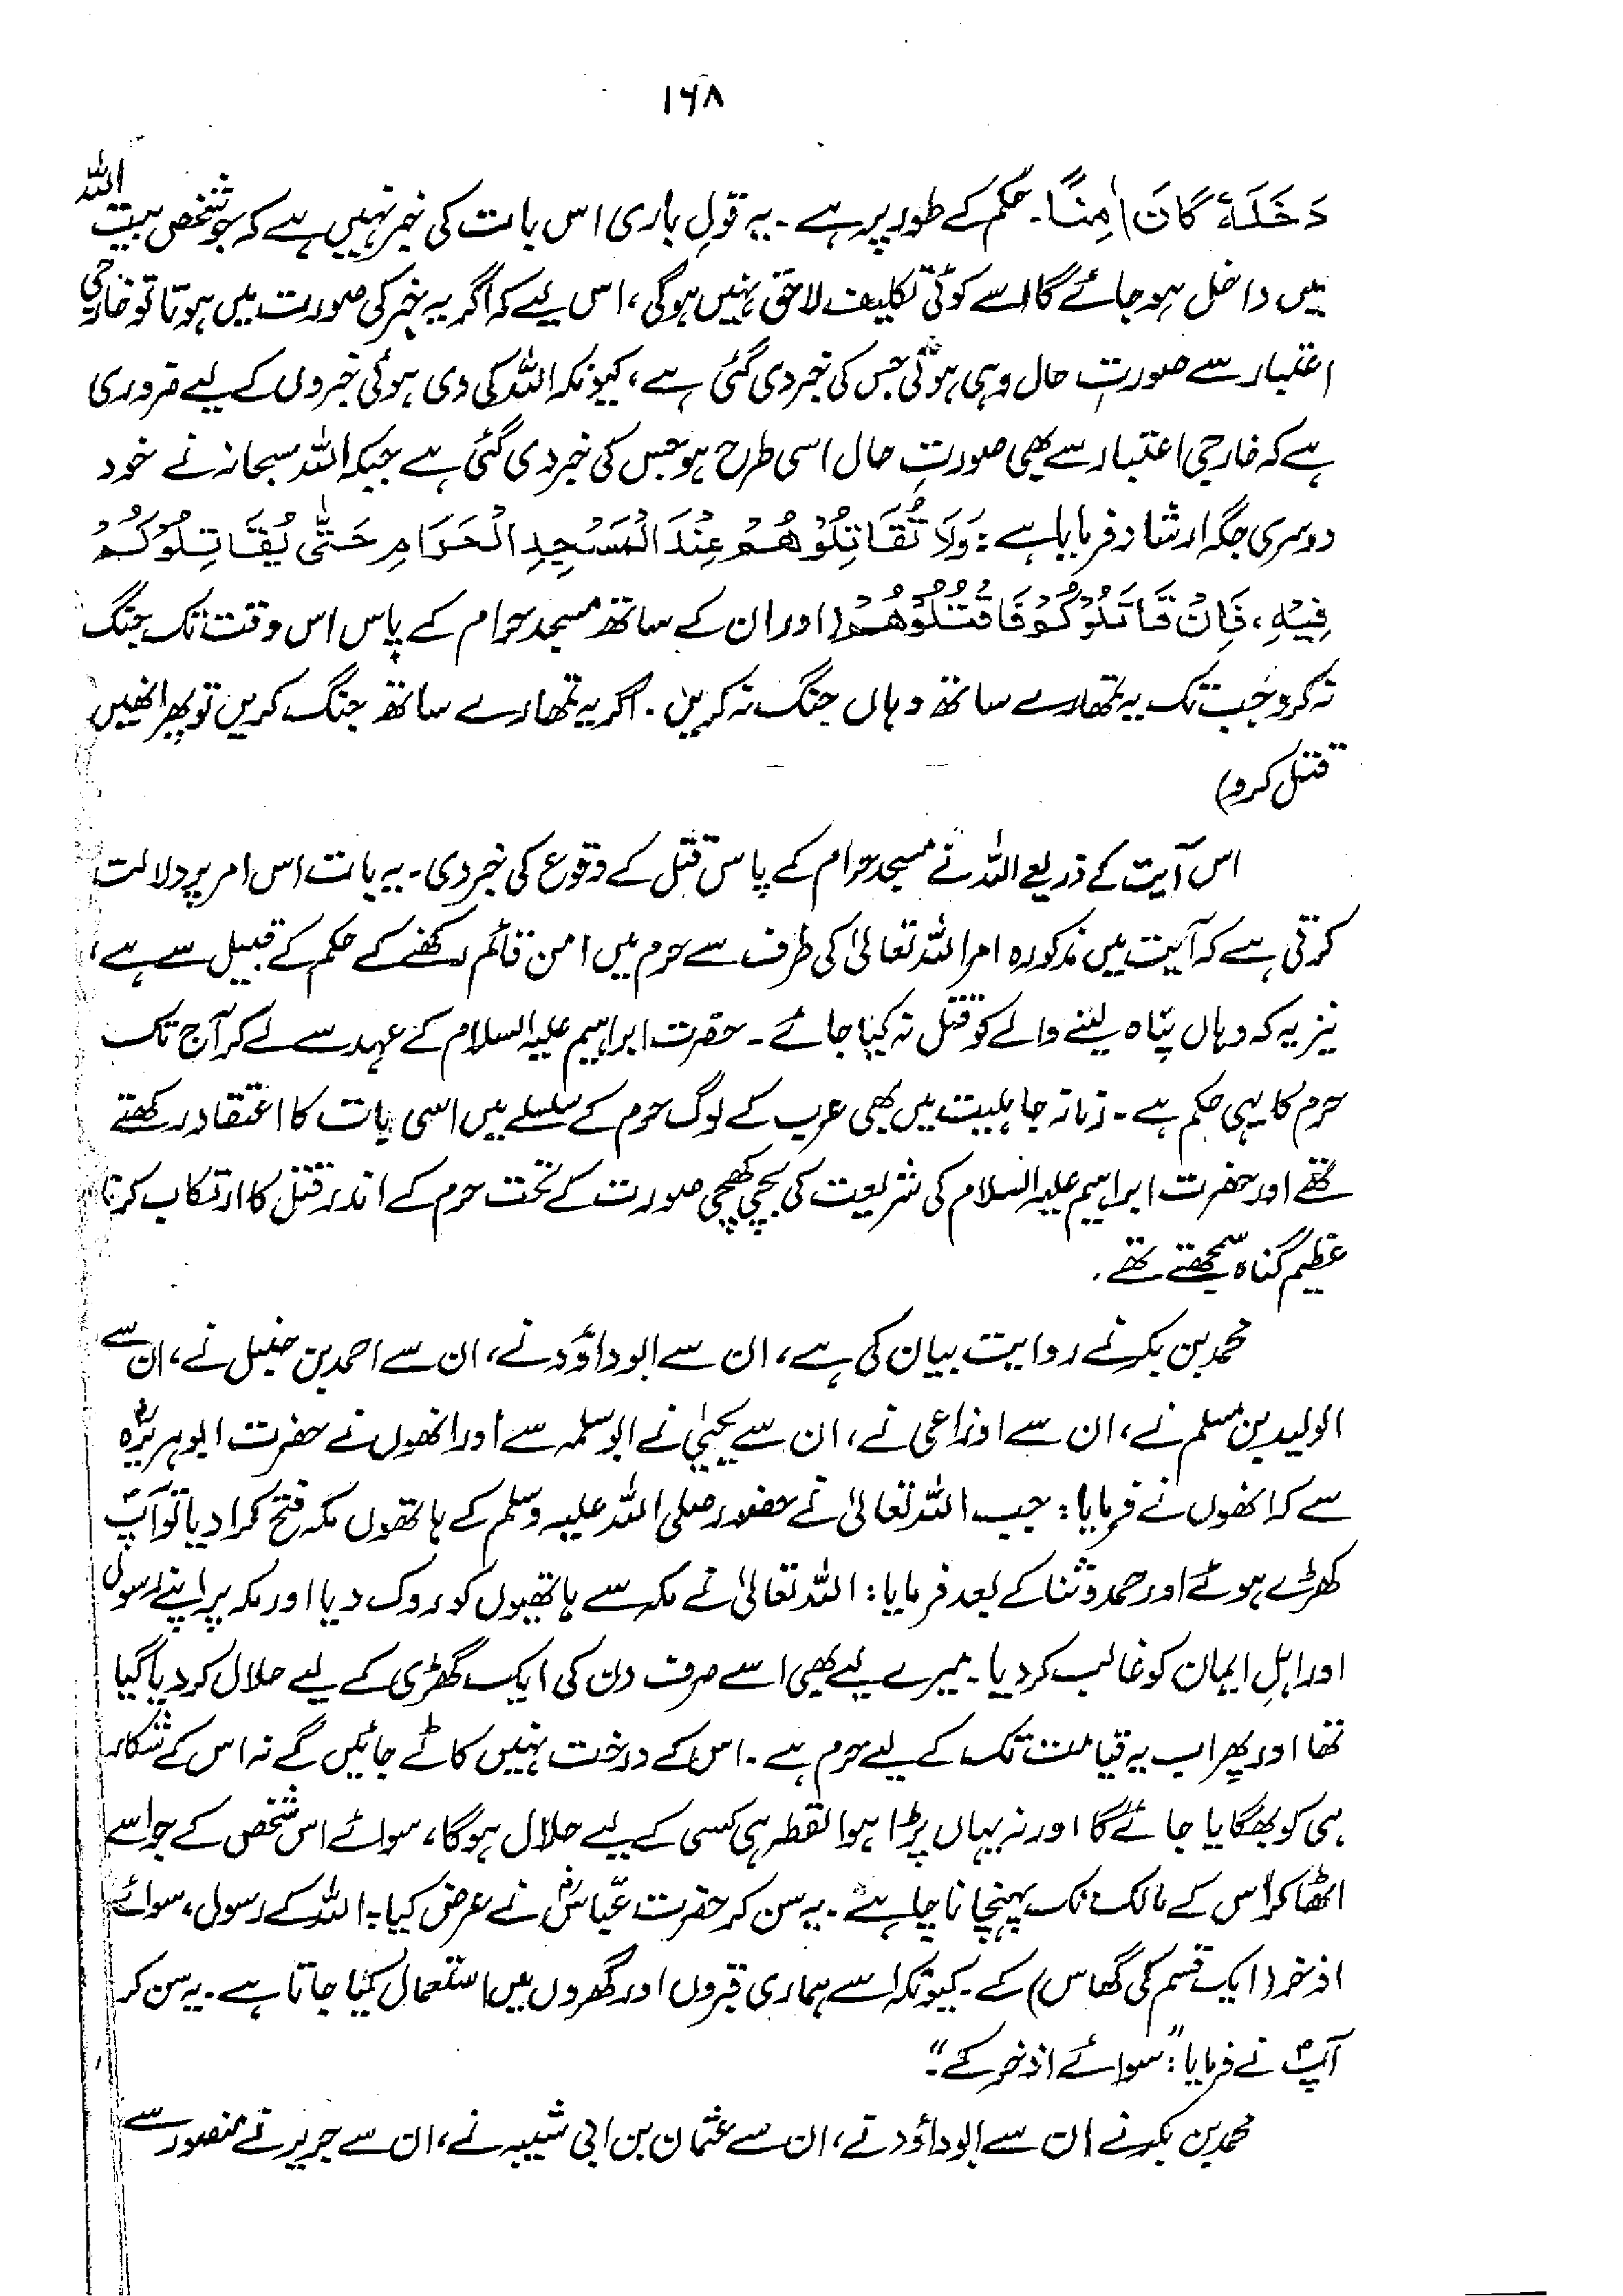 ۱۶۸
دَخَلَهٗ كَانَ اٰمِنًا۔ حکم کے طور پر ہے ۔ یہ قولِ باری اس بات کی خبر نہیں ہے کہ جو شخص بیت اللہ
میں داخل ہو جائے گا اسے کوئی تکلیف لاحق نہیں ہوگی، اس لیے کہ اگر یہ خبر کی صورت میں ہوتا تو خارجی
اعتبار سے صورتِ حال وہی ہوتی جس کی خبر دی گئی ہے، کیونکہ اللہ کی دی ہوئی خبروں کے لیے ضروری
ہے کہ خارجی اعتبار سے بھی صورتِ حال اسی طرح ہو جس کی خبر دی گئی ہے جبکہ اللہ سبحانہ نے خود
دوسری جگہ ارشاد فرمایا ہے : وَلَا تُقَاتِلُوْهُمْ عِنْدَ الْمَسْجِدِ الْحَرَامِ حَتّٰى يُقَاتِلُوْكُمْ
فِيْهِ، فَاِنْ قَاتَلُوْكُمْ فَاقْتُلُوْهُمْ (اور ان کے ساتھ مسجد حرام کے پاس اس وقت تک جنگ
نہ کرو جب تک یہ تمھارے ساتھ وہاں جنگ نہ کریں ۔ اگر یہ تمھارے ساتھ جنگ کریں تو پھر انھیں
قتل کرو)
اس آیت کے ذریعے اللہ نے مسجد حرام کے پاس قتل کے وقوع کی خبر دی ۔ یہ بات اس امر پر دلالت
کرتی ہے کہ آیت میں مذکورہ امر اللہ تعالیٰ کی طرف سے حرم میں امن قائم رکھنے کے حکم کے قبیل سے ہے،
نیز یہ کہ وہاں پناہ لینے والے کو قتل نہ کیا جائے ۔ حضرت ابراہیم علیہ السلام کے عہد سے لے کر آج تک
حرم کا یہی حکم ہے ۔ زمانہ جاہلیت میں بھی عرب کے لوگ حرم کے سلسلے میں اسی بات کا اعتقاد رکھتے
تھے اور حضرت ابراہیم علیہ السلام کی شریعت کی بچی کھچی صورت کے تحت حرم کے اندر قتل کا ارتکاب کرنا
عظیم گناہ سمجھتے تھے ۔
محمد بن بکر نے روایت بیان کی ہے، ان سے ابو داؤد نے، ان سے احمد بن حنبل نے، ان سے
الولید بن مسلم نے، ان سے اوزاعی نے، ان سے یحییٰ نے ابو سلمہ سے اور انھوں نے حضرت ابو ہریرہؓ
سے کہ انھوں نے فرمایا : جب اللہ تعالیٰ نے حضور صلی اللہ علیہ وسلم کے ہاتھوں مکہ فتح کرا دیا تو آپؐ
کھڑے ہوئے اور حمد و ثنا کے بعد فرمایا : اللہ تعالیٰ نے مکہ سے ہاتھیوں کو روک دیا اور مکہ پر اپنے رسول
اور اہلِ ایمان کو غالب کر دیا ۔ میرے لیے بھی اسے صرف دن کی ایک گھڑی کے لیے حلال کر دیا گیا
تھا اور پھر اب یہ قیامت تک کے لیے حرم ہے ۔ اس کے درخت نہیں کاٹے جائیں گے نہ اس کے شکار
ہی کو بھگایا جائے گا اور نہ یہاں پڑا ہوا لقطہ ہی کسی کے لیے حلال ہوگا، سوائے اس شخص کے جو اسے
اٹھا کر اس کے مالک تک پہنچانا چاہے ۔ یہ سن کر حضرت عبّاسؓ نے عرض کیا ۔ اللہ کے رسول، سوائے
اذخر (ایک قسم کی گھاس) کے ۔ کیونکہ اسے ہماری قبروں اور گھروں میں استعمال کیا جاتا ہے ۔ یہ سن کر
آپؐ نے فرمایا : "سوائے اذخر کے"۔
محمد بن بکر نے ان سے ابو داؤد نے، ان سے عثمان بن ابی شیبہ نے، ان سے جریر نے منصور سے